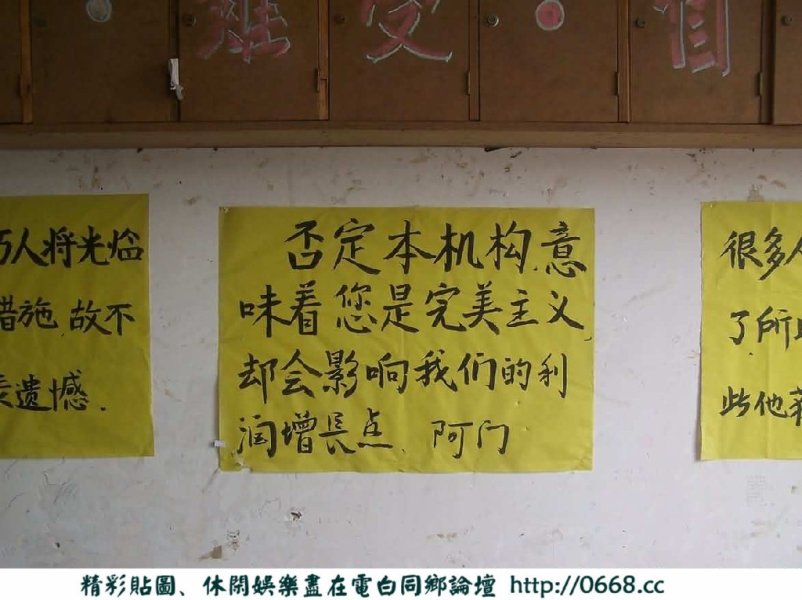 難 受 自
人将光临
措施,故不
表遗憾.
否定本机构,意
味着您是完美主义
却会影响我们的利
润增長点,阿门
很多人
了所
些他
精彩貼圖、休閑娛樂盡在電白同鄉論壇 http://0668.cc